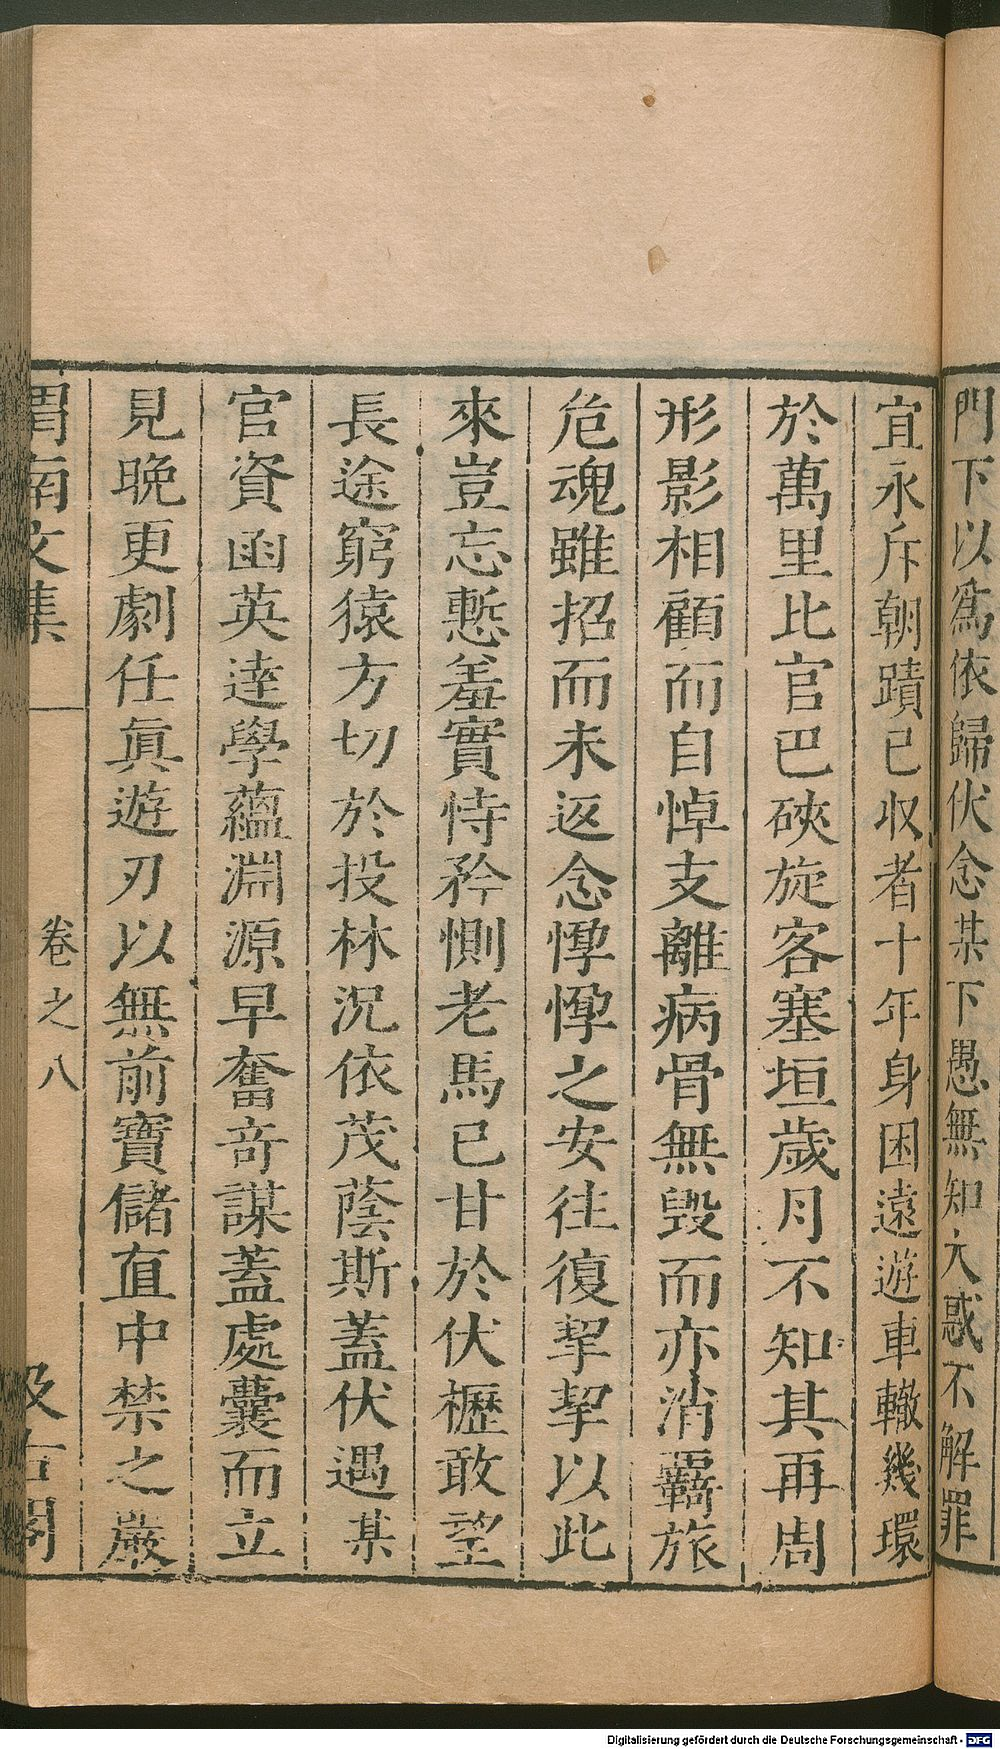 門下以爲依歸伏念某下愚無知大惑不解罪
宜永斥朝蹟已収者十年身困遠遊車轍幾環
於萬里比官巴硤旋客塞垣歲月不知其再周
形影相顧而自悼支離病骨無毀而亦消羇旅
危魂雖招而未返念惸惸之安往復挈挈以此
來豈忘慙羞實恃矜惻老馬已甘於伏櫪敢望
長途窮猿方切於投林況依茂蔭斯蓋伏遇某
官資函英逹學蘊淵源早奮竒謀蓋處囊而立
見晚更劇任眞遊刃以無前寶儲直中禁之嚴
渭南文集
卷之八
汲古閣
Digitalisierung gefördert durch die Deutsche Forschungsgemeinschaft - DFG